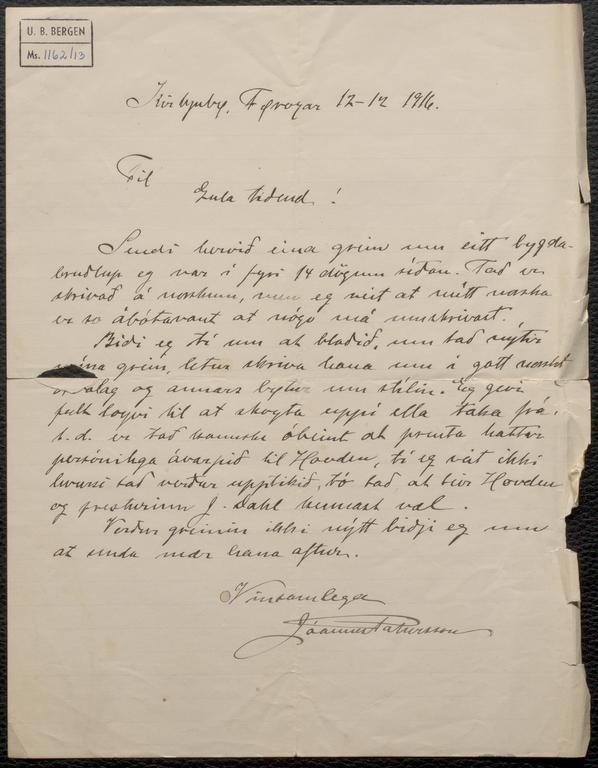 U. B. BERGEN
Ms. 1162/13
Kirkjubø, Føroyar 12-12 1916.
Til
Gula tidend!
Sendi hervið eina grein um eitt bygda-
brudlup eg var í fyri 14 døgum síðan. Tað er
skrivað á norskum, men eg veit at mítt norska
er so ábótavant at nógv má umskrivast.
Biði eg tí um at bladið, um tað nýtir
mína grein, letur skriva hana um í gott norskt
orðalag og annars bytur um stílin. Eg gevi
fult loyvi til at skoyta uppí ella taka frá,
t.d. er tað kanske óbeint at prenta hattar
persónliga ávarpið til Hovden, tí eg veit ikki
hvussi tað verður upptikið, tó tað, at teir Hovden
og presturinn J. Dahl kennast væl.
Verdur greinin ikki nýtt bidji eg um
at senda mær hana aftur.
Vinsamlega
Jóannes Patursson